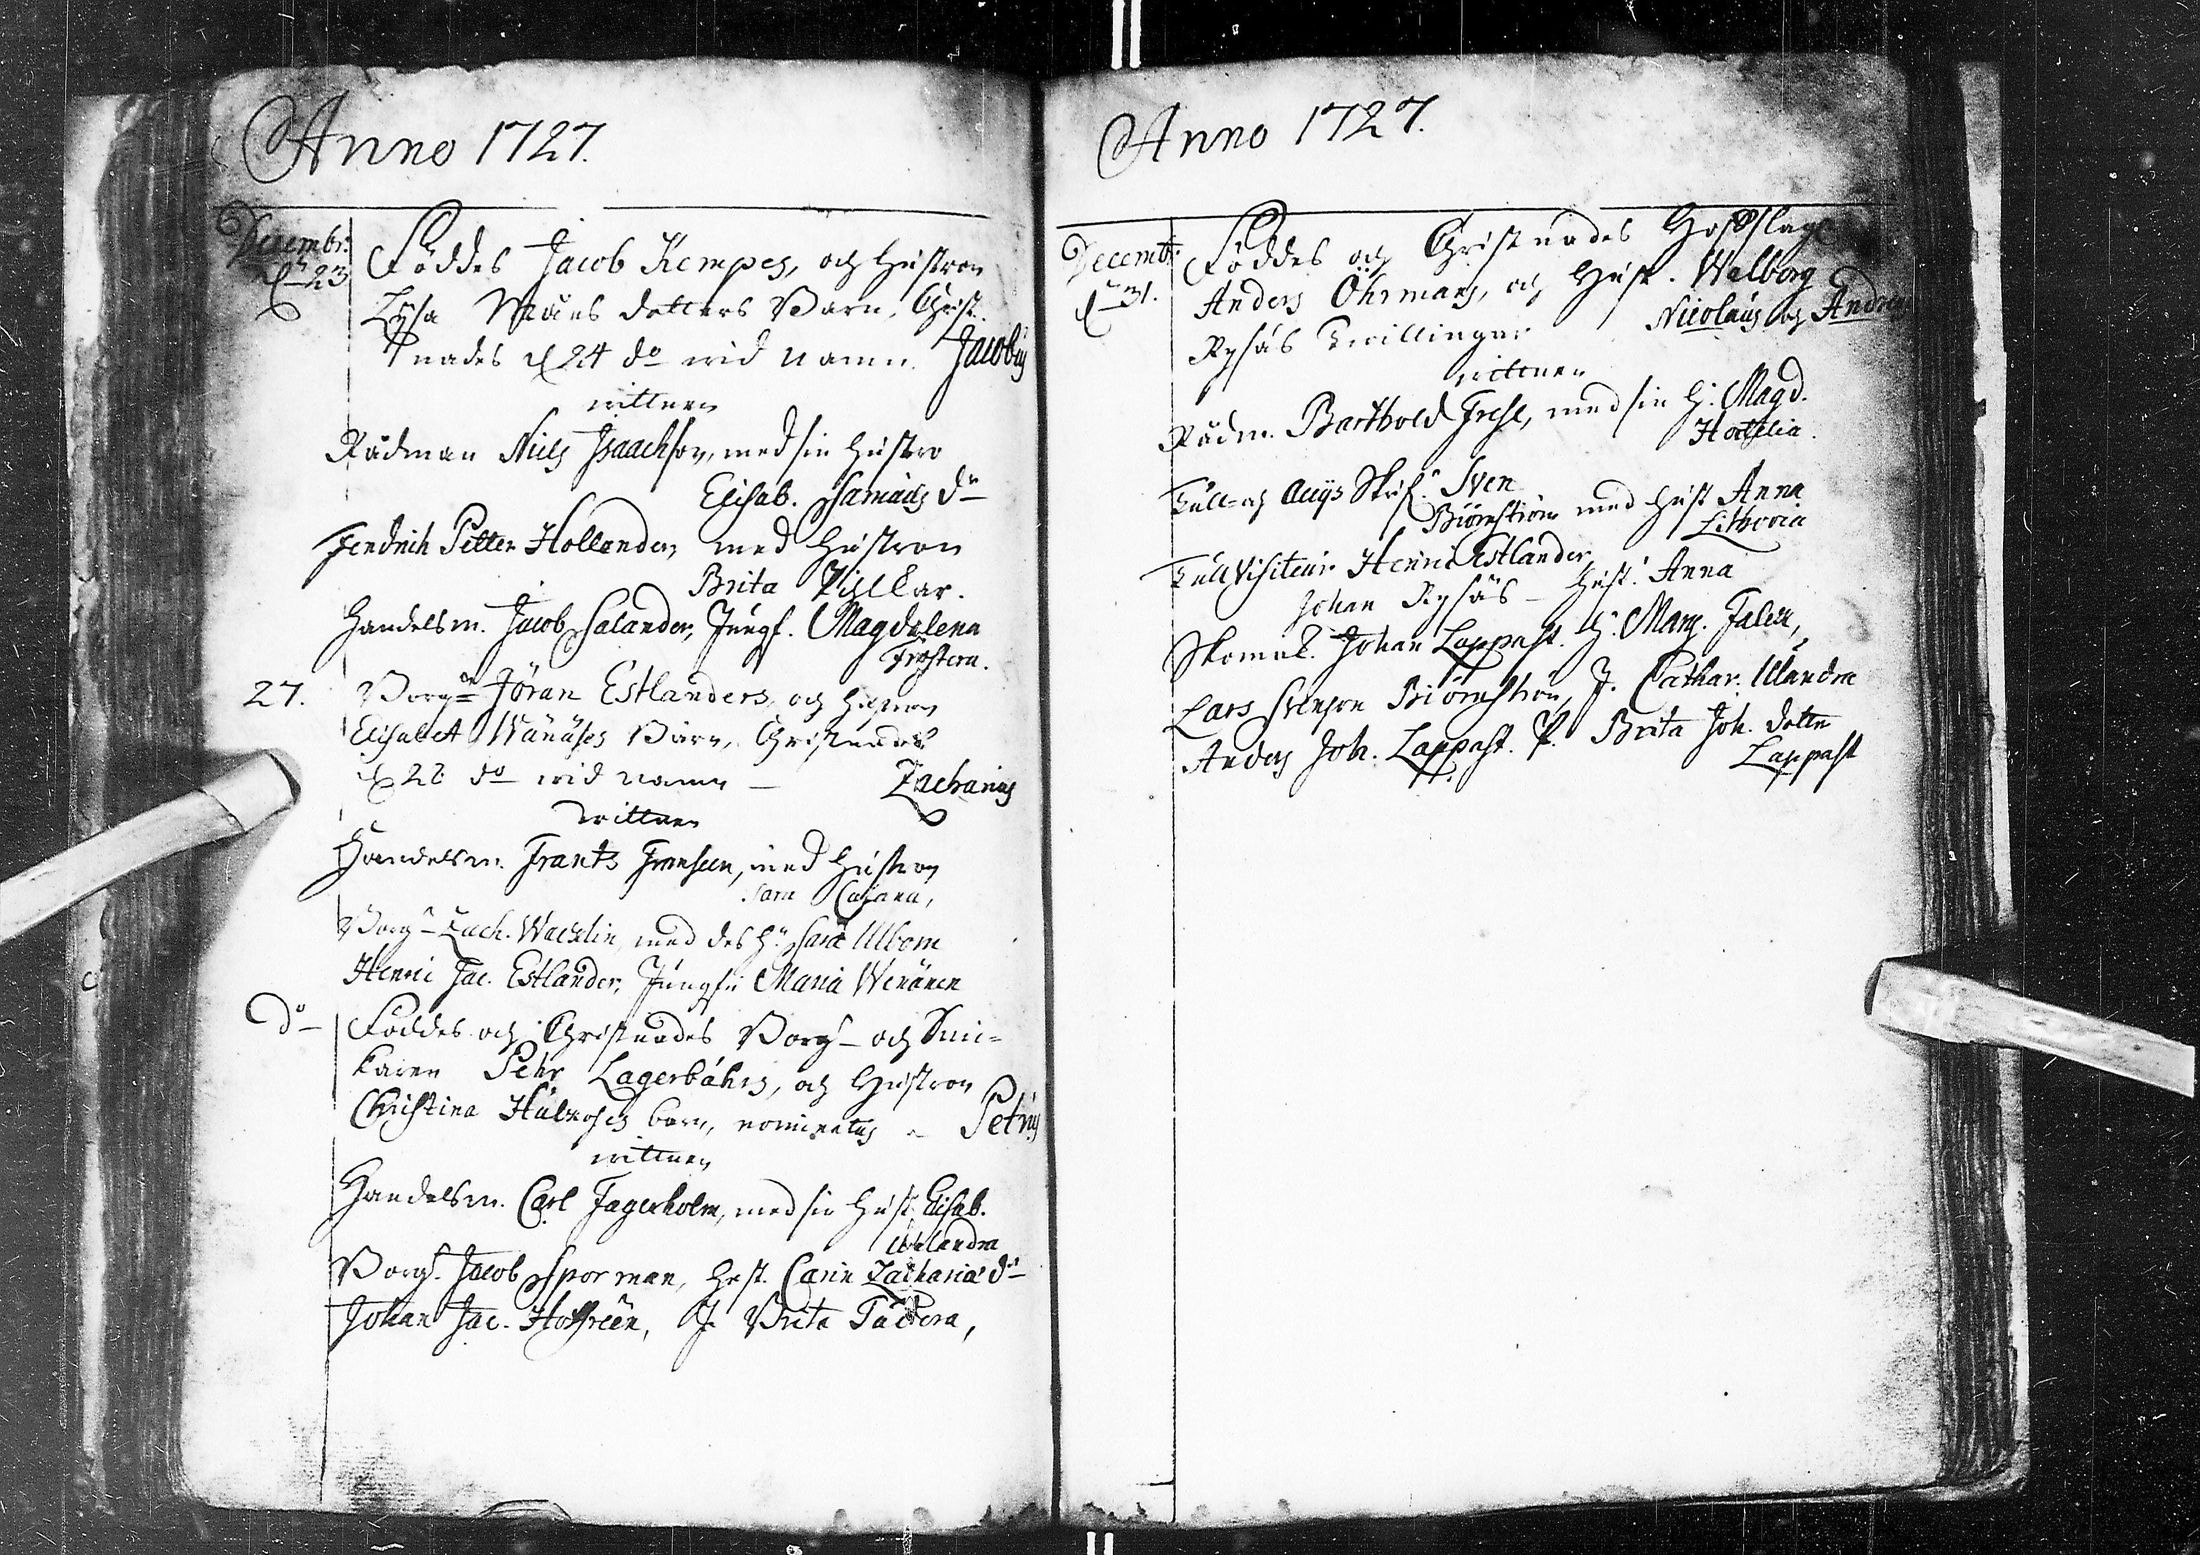 Anno 1727.
Decembr.
d. 23
Föddes Jacob Kempes, och Hustron
Lysa Måns dotters Barn, Christ-
nades d 24 do wid namn. Jacobus
wittnen
Rådman Niels Isaachson, med sin Hustro
Elisab. Samuels dr
Fendrich Petter Hollender, med Hustron
Brita
Handelsm. Jacob Salander, Jungf. Magdalena
Frostera.
27.
Borgn Jöran Estlanders, och Hustron
Elisabet Wänäses Barn, Christnades
d 28 do wid namn - Zacharias
wittnen
Handelsm. Frants Franseen, med Hustron
Sara Cajana,
Borgn Zach. Wacklin, med des Hu Sara Ulbom
Henric Jac. Estlander, Jungfu Maria Wenänen
do
Föddes och Christnades Borgn och
Pehr Lagerbåhrs, och Hustron
Christina barn, nominatus - Petrus
wittnen
Handelsm. Carl Fagerholm, med sin Hust Elisab.
Borg. Jacob Sporman, Hust. Carin Zacharia dr
Johan Jac. Hoffreen, J. Brita
Anno 1727.
Decemb.
d 31.
Föddes och Christnades Hofslag.
Anders Öhrmans, och Hust. Walborg
Rysäs twillingar Nicolaus och Andreas
wittnen
Rådm. Barthold Frese, med sin H: Magd.
Tull- och Skrif. Sven
Biörnström med Hust Anna
Lithovia
Tull Visiteur Henric Estlander
Johan Rysäs - Hust. Anna
Skomak. Johan Lappast. H. Marg. Falck,
Lars Svenson Biörnström, J. Cathar. Ulandra
Anders Joh. Lappast. P. Brita Joh. dotter
Lappast